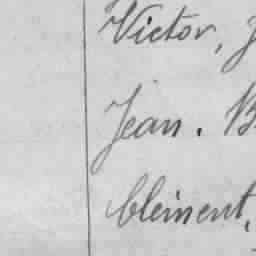 Victor, J
Jean. B
Clément,